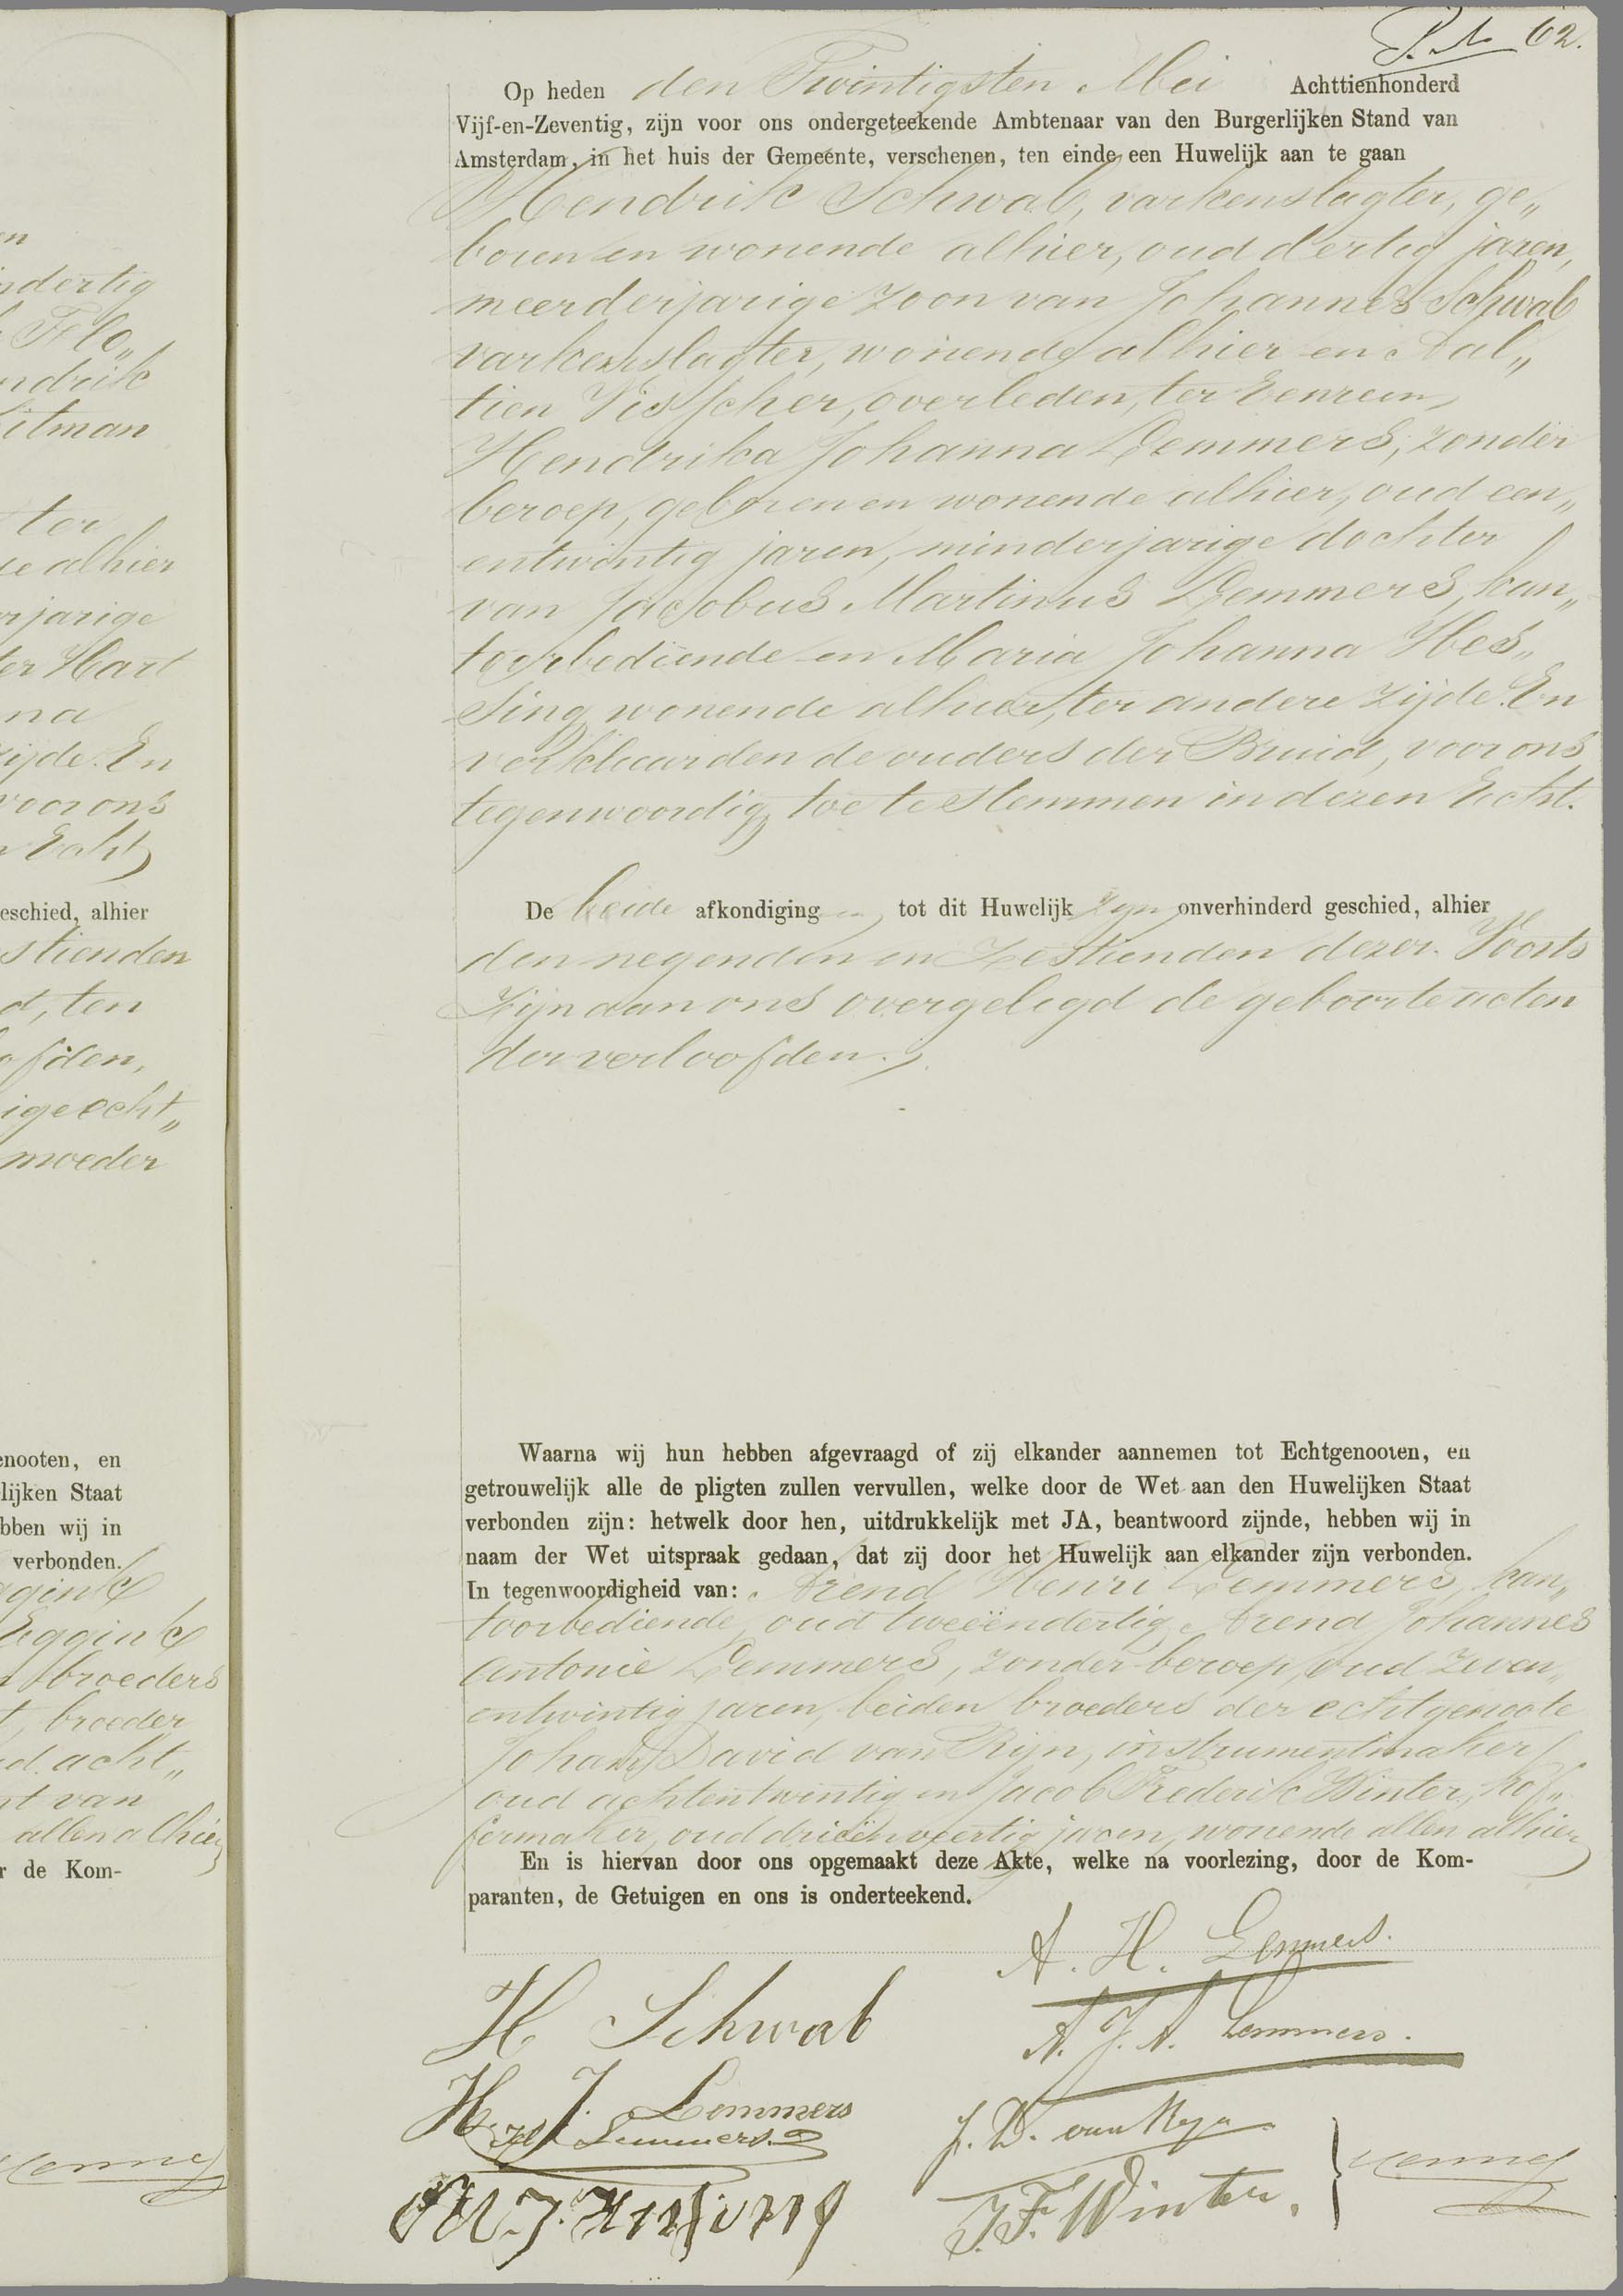 n
ndertig
Flo„
ndrik
itman
ter
te alhier
rjarige
ter Hart
na
zijde. En
voor ons
n Echt
geschied, alhier
stienden
d, ten
ofden,
ige echt„
moeder
enooten, en
lijken Staat
bben wij in
verbonden.
ggink
Eggink
broeders
t, broeder
d. acht„
nt van
allen alhier
r de Kom-
62.
Op heden den Twintigsten Mei Achttienhonderd
Vijf-en-Zeventig, zijn voor ons ondergeteekende Ambtenaar van den Burgerlijken Stand van
Amsterdam, in het huis der Gemeente, verschenen, ten einde een Huwelijk aan te gaan
Hendrik Schwab, varkenslagter, ge„
boren en wonende alhier, oud dertig jaren,
meerderjarige zoon van Johannes Schwab
varkenslagter, wonende alhier en Aal„
tien Visscher, overleden, ter eenre en
Hendrika Johanna Lemmers, zonder
beroep, geboren en wonende alhier, oud een„
entwintig jaren, minderjarige dochter
van Jacobus Martinus Lemmers, kan„
toorbediende en Maria Johanna Hes„
sing wonende alhier, ter andere zijde. En
verklaarden de ouders der Bruid, voor ons
tegenwoordig, toe te stemmen in dezen Echt.
De beide afkondigingen tot dit Huwelijk zijn onverhinderd geschied, alhier
den negenden en Zestienden dezer. Voorts
Zijn aan ons overgelegd de geboorteacten
der verloofden.
Waarna wij hun hebben afgevraagd of zij elkander aannemen tot Echtgenooten, en
getrouwelijk alle de pligten zullen vervullen, welke door de Wet aan den Huwelijken Staat
verbonden zijn: hetwelk door hen, uitdrukkelijk met JA, beantwoord zijnde, hebben wij in
naam der Wet uitspraak gedaan, dat zij door het Huwelijk aan elkander zijn verbonden.
In tegenwoordigheid van: Arend Henri Lemmers, kan„
toorbediende, oud tweeëndertig, Arend Johannes
Antonie Lemmers, zonder beroep, oud zeven„
entwintig jaren, beiden broeders der echtgenoote
Johan David van Rijn, instrumentmaker
oud achtentwintig en Jacob Frederik Winter, kof„
fermaker, oud drieënveertig jaren, wonende allen alhier
En is hiervan door ons opgemaakt deze Akte, welke na voorlezing, door de Kom-
paranten, de Getuigen en ons is onderteekend.
A. H. Lemmers.
H Schwab
A. J. A. Lemmers.
H J. Lemmers
Lemmers.
J. D. van Ryn
M. J. Hessing
J. F. Winter.